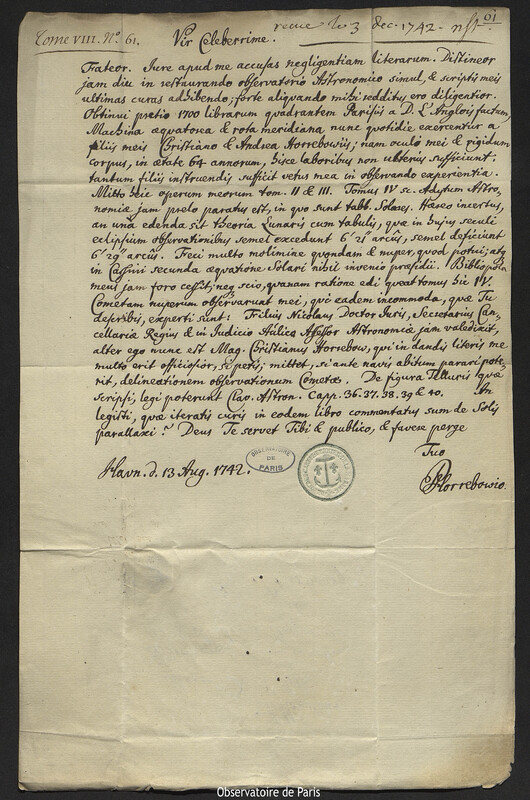 61
Tome VIII. N.º 61. Vir Celeberrime. recue le 3 dec. 1742. nst.
Fateor. Jure apud me accusas negligentiam literarum. Distineor
jam diu in restaurando observatorio Astronomico simul, & scriptis meis
ultimas curas adhibendo; forte aliquando mihi redditus ero diligentior.
Obtinui pretio 1700 librarum quadrantem Parisiis a D. L'Anglois factum.
Machina æquatorea & rota meridiana nunc quotidie exercentur a
filiis meis Christiano & Andrea Horrebowiis; nam oculo mei & rigidum
corpus, in ætate 64 annorum, hisce laboribus non ulterius sufficiunt;
tantum filiis instruendis sufficit vetus mea in observando experientia.
Mitto heic operum meorum tom. II & III. Tomus IV sc. Adytum Astro,
nomiæ jam prelo paratus est, in quo sunt tabb. Solares. Hæreo incertus,
an una edenda sit theoria Lunaris cum tabulis, quæ in hujus seculi
eclipsium observationibus semel excedunt 6' 21 arcûs, semel deficiunt
6' 29'' arcûs. Feci multo molimine quondam & nuper, quod potui; atq
in Cassini secunda æquatione Solari nihil invenio præsidii. Bibliopola
meus jam foro cessit; neq scio, quanam ratione edi queat tomus hic IV.
Cometam nuperum observarunt mei, qui eadem incommoda, quæ Tu
describis, experti sunt. Filius Nicolaus Doctor Juris, Secretarius Can,
cellariæ Regius & in Judicio Aulico Assessor Astronomiæ jam valedixit,
alter ego nunc est Mag. Christianus Horrebow, qui in dandis literis me
multo erit officiosior, si petis; mittet, si ante navis abitum parari pote,
rit, delineationem observationum Cometæ. De figura Telluris quæ
scripsi, legi poterunt Clav. Astron. Capp. 36. 37. 38. 39 & 40. An
legisti, quæ iteratis curis in eodem libro commentatus sum de Solis
parallaxi? Deus Te servet Tibi & publico, & favere perge
Tuo
Havn. d. 13 Aug. 1742. PHorrebowio.
OBSERVATOIRE
DE
PARIS
Observatoire de Paris